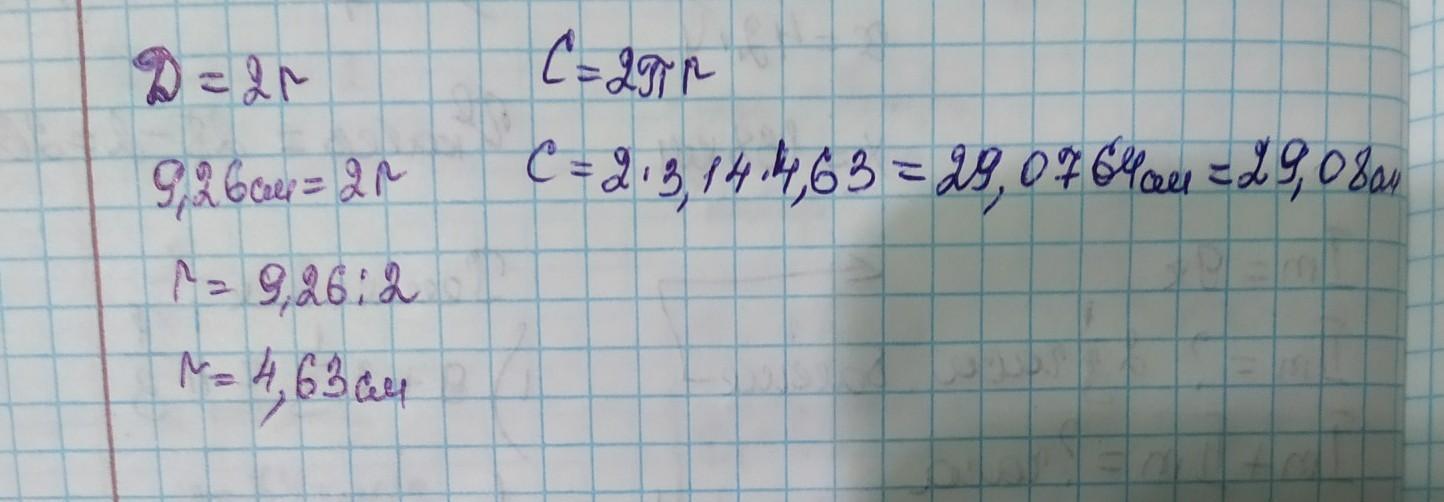 D = 2r
9,26см = 2r
r = 9,26 : 2
r = 4,63см
C = 2πr
C = 2·3,14·4,63 = 29,0764см = 29,08см